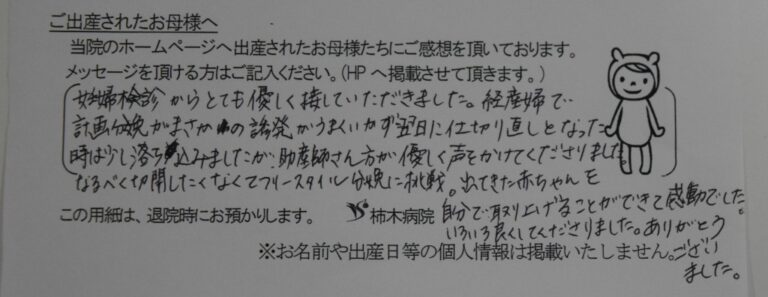 ご出産されたお母様へ
当院のホームページへ出産されたお母様たちにご感想を頂いております。
メッセージを頂ける方はご記入ください。(HPへ掲載させて頂きます。)
妊婦検診からとても優しく接していただきました。経産婦で
計画分娩がまさかの誘発がうまくいかず翌日に仕切り直しとなった
時は少し落ち込みましたが、助産師さん方が優しく声をかけてくださりました。
なるべく切開したくなくてフリースタイル分娩に挑戦。出てきた赤ちゃんを
自分で取り上げることができて感動でした。
いろいろ良くしてくださりました。ありがとう
ござい
ました。
この用紙は、退院時にお預かりします。 柿木病院
※お名前や出産日等の個人情報は掲載いたしません。